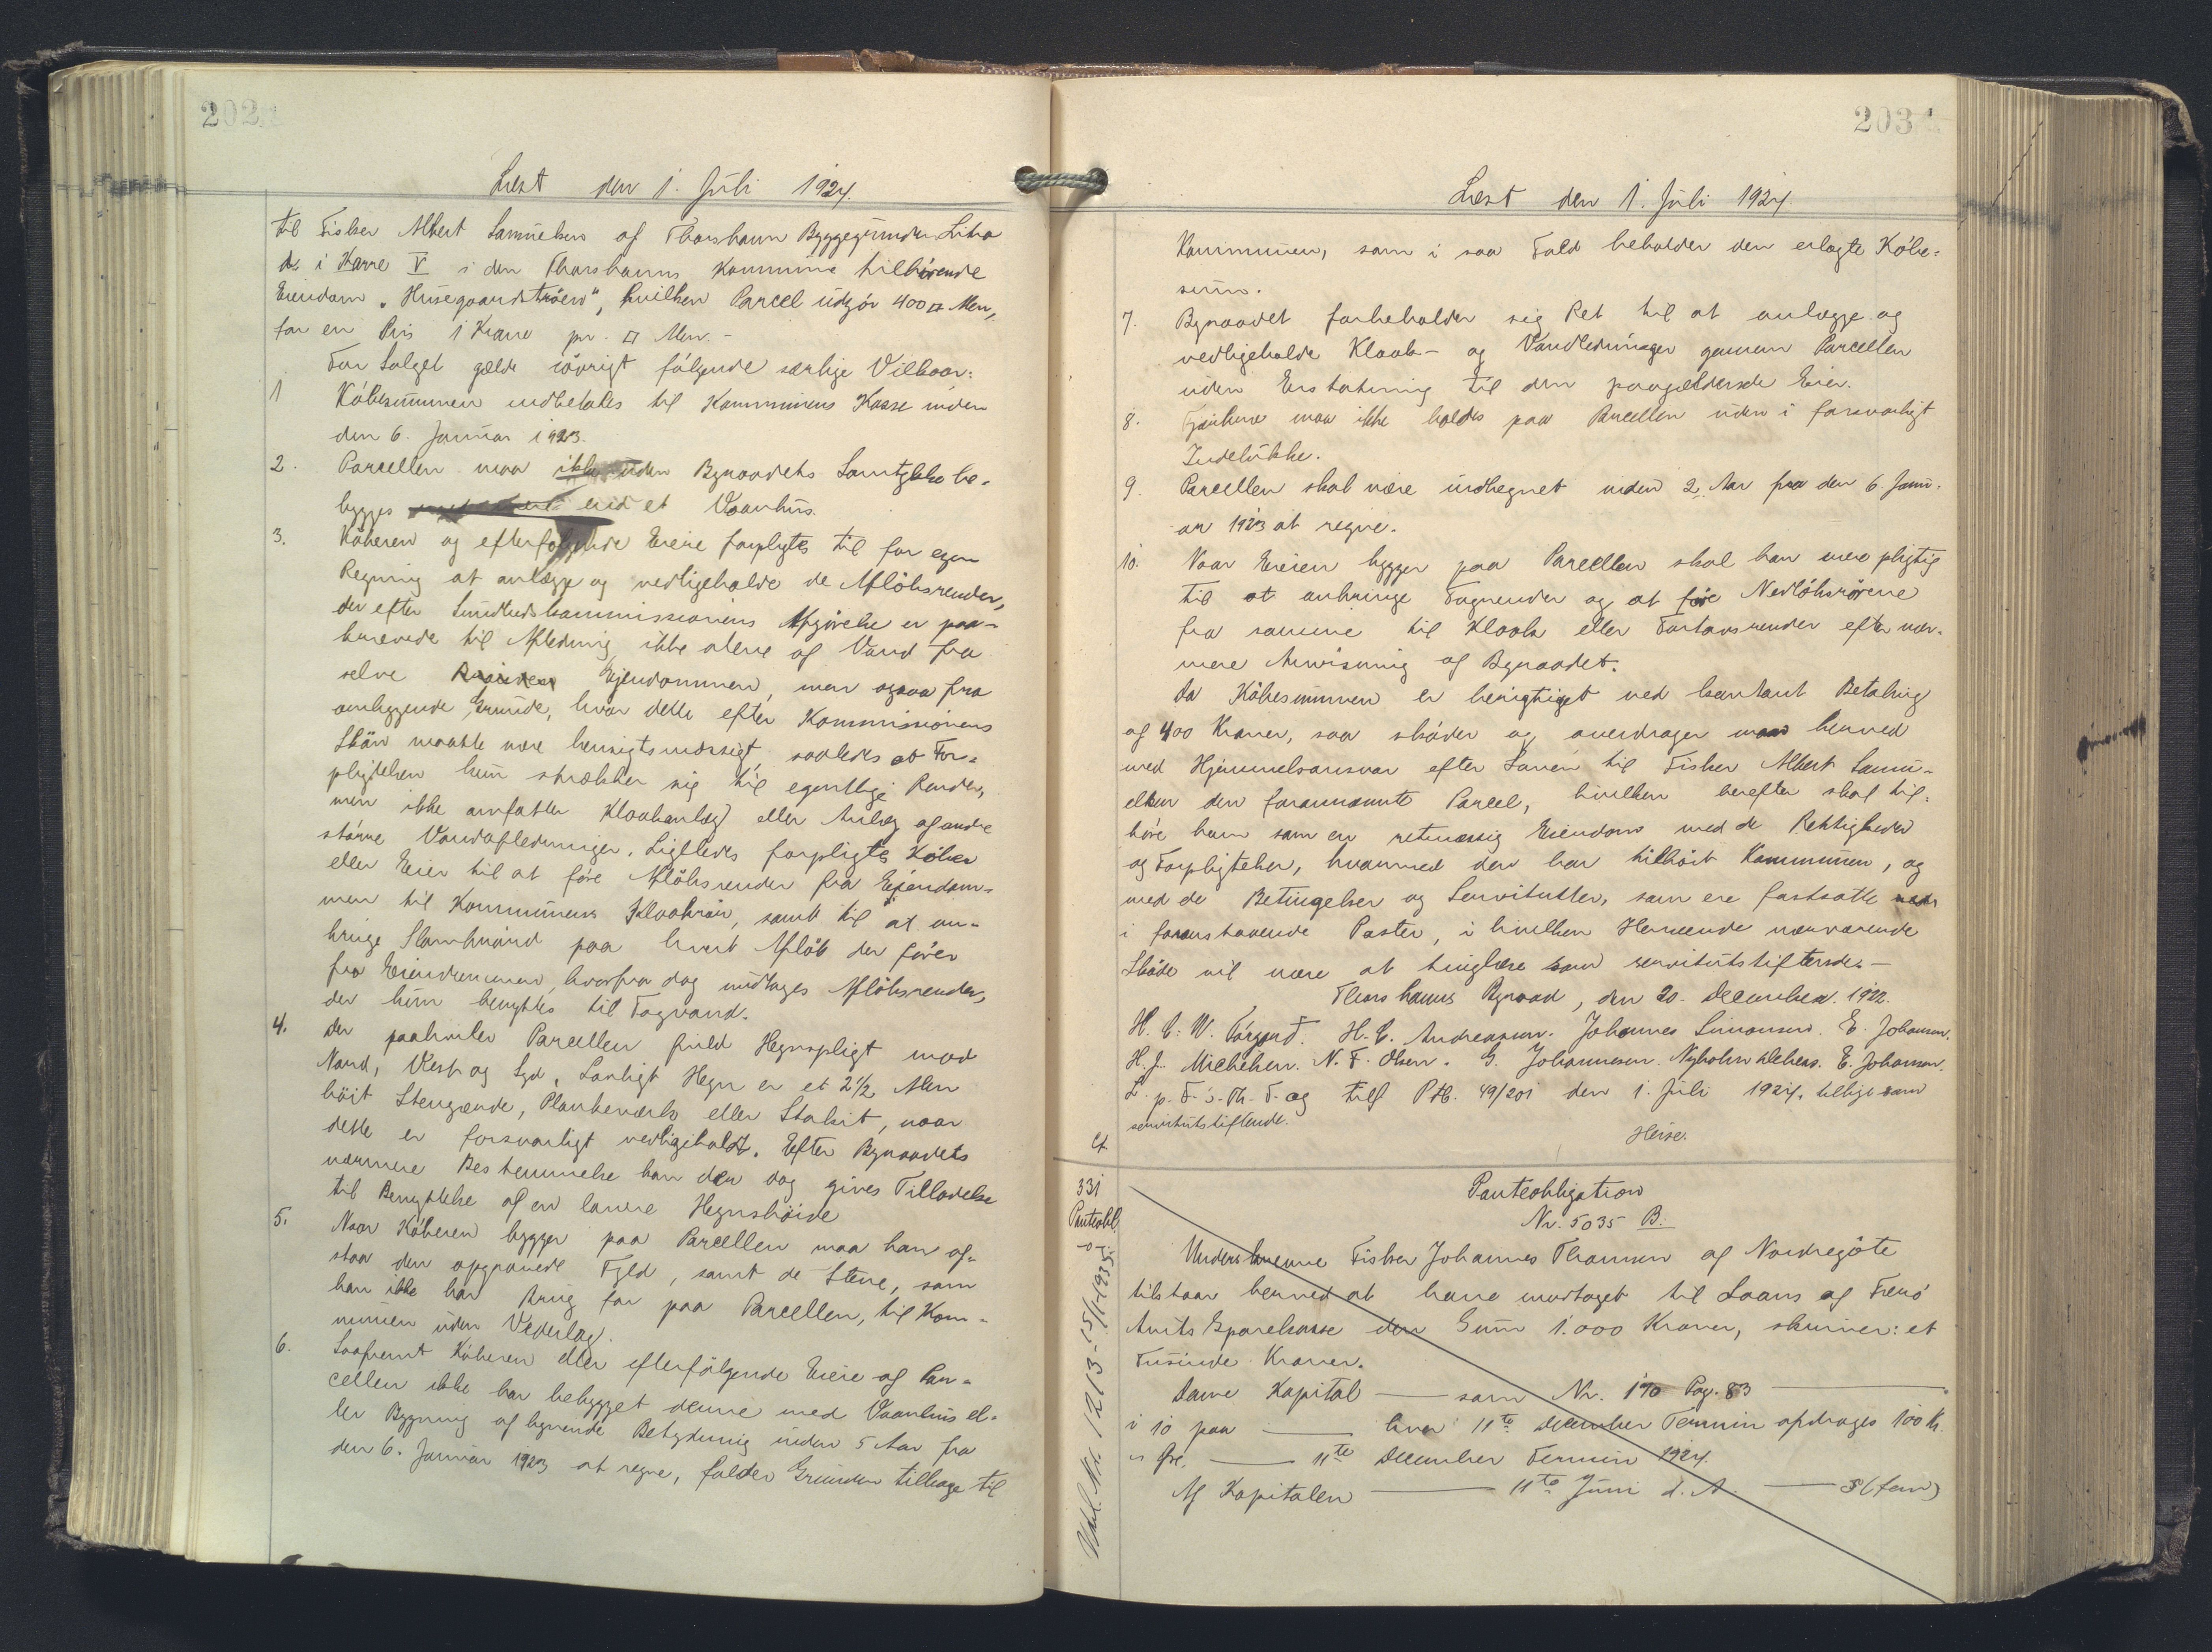 202
Læst den 1. Juli 1924.
til Fisker Albert Samuelsen af Thorshavn Byggegrunden Litra
d. i Karre V i den Thorshavns Kommune tilhörende
Eiendom "Husegaardströen", hvilken Parcel udgör 400 □ Alen,
for en Pris 1 Krone pr. □ Alen. -
For Salget gælde iövrigt fölgende særlige Vilkaar:
1 Köbesummen indbetales til Kommunens Kasse inden
den 6. Januar 1923.
2. Parcellen maa ikke uden Byraadets Samtykke be-
bygges end et Vaanhus.
3. Köberen og efterfölgende Eiere forpligtes til for egen
Regning at anlægge og vedligeholde de Aflöbsrender,
der efter Sundhedskommissionens Afgörelse er paa-
krævede til Afledning ikke alene af Vand fra
selve Ejendommen, men ogsaa fra
omliggende Grunde, hvor dette efter Kommissionens
Skön maatte være hensigtsmæssigt, saaledes at For-
pligtelsen kun strækker sig til egentlige Render,
men ikke omfatter Kloakanlæg eller Anlæg af andre
större Vandafledninger. Ligeledes forpligtes Köber
eller Eier til at före Aflöbsrender fra Ejendom-
men til Kommunens Kloakrör, samt til at an-
bringe Slambrönd paa hvert Aflöb der förer
fra Eiendommen, hvorfra dog undtages Aflöbsrender,
der kun benyttes til Tagvand.
4. Der paahviler Parcellen fuld Hegnspligt mod
Nord, Vest og Syd. Lovligt Hegn er et 2 1/2 Alen
höit Stengærde, Plankeværk eller Stakit, naar
dette er forsvarligt vedligeholdt. Efter Byraadets
nærmere Bestemmelse kan der dog gives Tilladelse
til Benyttelse af en lavere Hegnshöide
5. Naar Köberen bygger paa Parcellen maa han af-
staa den opgravede Fyld, samt de Stene, som
han ikke har Brug for paa Parcellen, til Kom-
munen uden Vederlag.
6. Saafremt Köberen eller efterfölgende Eiere af Par-
cellen ikke har bebygget denne med Vaanhus el-
ler Bygning af lignende Betydning inden 5 Aar fra
den 6. Januar 1923 at regne, falder Grunden tilbage til
203
Læst den 1. Juli 1924.
Kommunen, som i saa Fald beholder den erlagte Köbe-
sum.
7. Byraadet forbeholder sig Ret til at anlægge og
vedligeholde Kloak- og Vandledninger gennem Parcellen
uden Erstatning til den paagældende Eier.
8. Fjerkre maa ikke holdes paa Parcellen uden i forsvarligt
Indelukke.
9. Parcellen skal være indhegnet inden 2 Aar fra den 6. Janu-
ar 1923 at regne.
10. Naar Eieren bygger paa Parcellen skal han være pligtig
til at anbringe Tagrender og at före Nedlöbsrörene
fra samme til Kloak eller Fortovsrender efter nær-
mere Anvisning af Byraadet.
Da Köbesummen er berigtiget ved kontant Betaling
af 400 Kroner, saa sköder og overdrager man herved
med Hjemmelsansvar efter Loven til Fisker Albert Samu-
elsen den forannævnte Parcel, hvilken herefter skal til-
höre ham som en retmæssig Eiendom med de Rettigheder
og Forpligtelser, hvormed den har tilhört Kommunen, og
med de Betingelser og Servitutter, som ere fastsatte
i foranstaaende Poster, i hvilken Henseende nærværende
Sköde vil være at tinglæse som servitutstiftende. -
Thorshavns Byraad, den 20. December 1922.
H. C. W. Törgard. H. C. Andreasen. Johannes Simonsen. E. Johansen.
H. J. Michelsen. N. F. Olsen. G. Johannesen. Nyholm Debess. E. Johansen.
L. p. F. s. Th. F. og tilf Ptb. 49/201 den 1. Juli 1924, tillige som
servitutstiftende.
Heise.
ct
331
Panteobl.
Pantobligation
Nr. 5035 B.
Underskrevne Fisker Johannes Thomsen af Nordregöte
tilstaar herved at have modtaget til Laans af Færö
Amts Sparekasse den Sum 1.000 Kroner, skriver: et
Tusinde Kroner.
Denne Kapital — som Nr. 170 Pag. 83 —
i 10 paa — hver 11te December Termin afdrages 100 Kr.
" Öre. — 11te December Termin 1924.
Af Kapitalen — 11te Juni d. A. — 5 (fem)
Udsl. Nr. 1213 - 15/1-1935